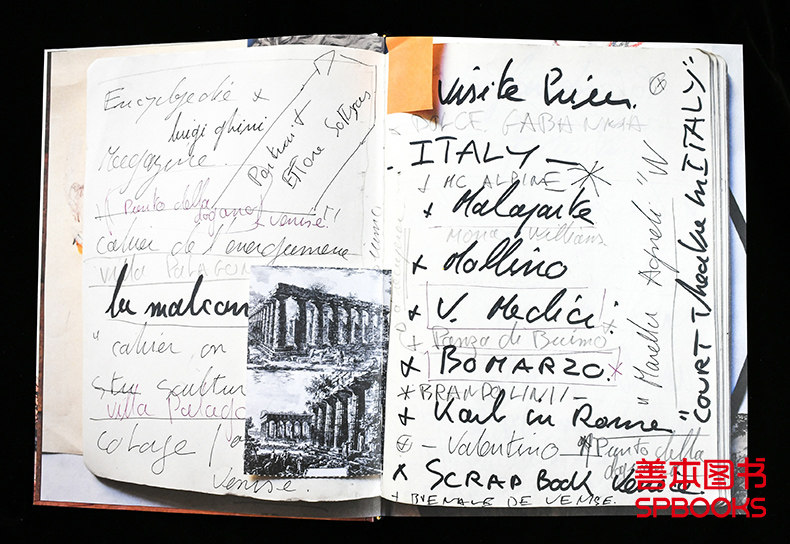 Encyclopedie x
luigi ghirri
Magazine.
Portrait
Ettore Sottsass
Punta della
dogana
venise!!
cahier de l'energumene
VILLA PALAGON
la malcon
"cahier on
scultur
villa Palago
colage
Venise.
Visite Priée.
DOLCE GABANNA
ITALY –
MC ALPINE
x Malaparte
Mona Williams
x Mollino
x V. Medici.
+ Panza di Buimo
x BOMARZO.
x BRANDOLINI –
+ Karl in Rome
– Valentino
Punta della
x SCRAP Book Venise
+ BIENALE DE VENISE.
"Marella Agneli"
"COURT Theatre in ITALY"
善本图书
SPBOOKS